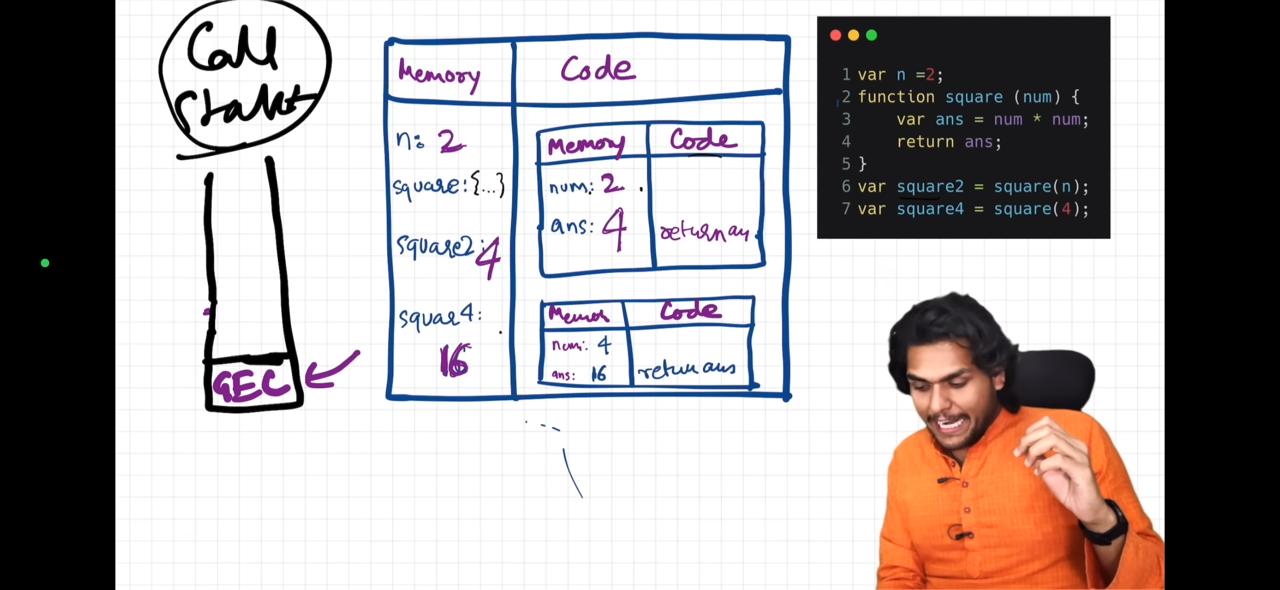 Call
Stack
GEC
Memory
Code
n: 2
square: {...}
square2: 4
squar4:
16
Memory
Code
num: 2
ans: 4
return an
Memor
Code
num: 4
ans: 16
return ans
1 var n =2;
2 function square (num) {
3 var ans = num * num;
4 return ans;
5 }
6 var square2 = square(n);
7 var square4 = square(4);